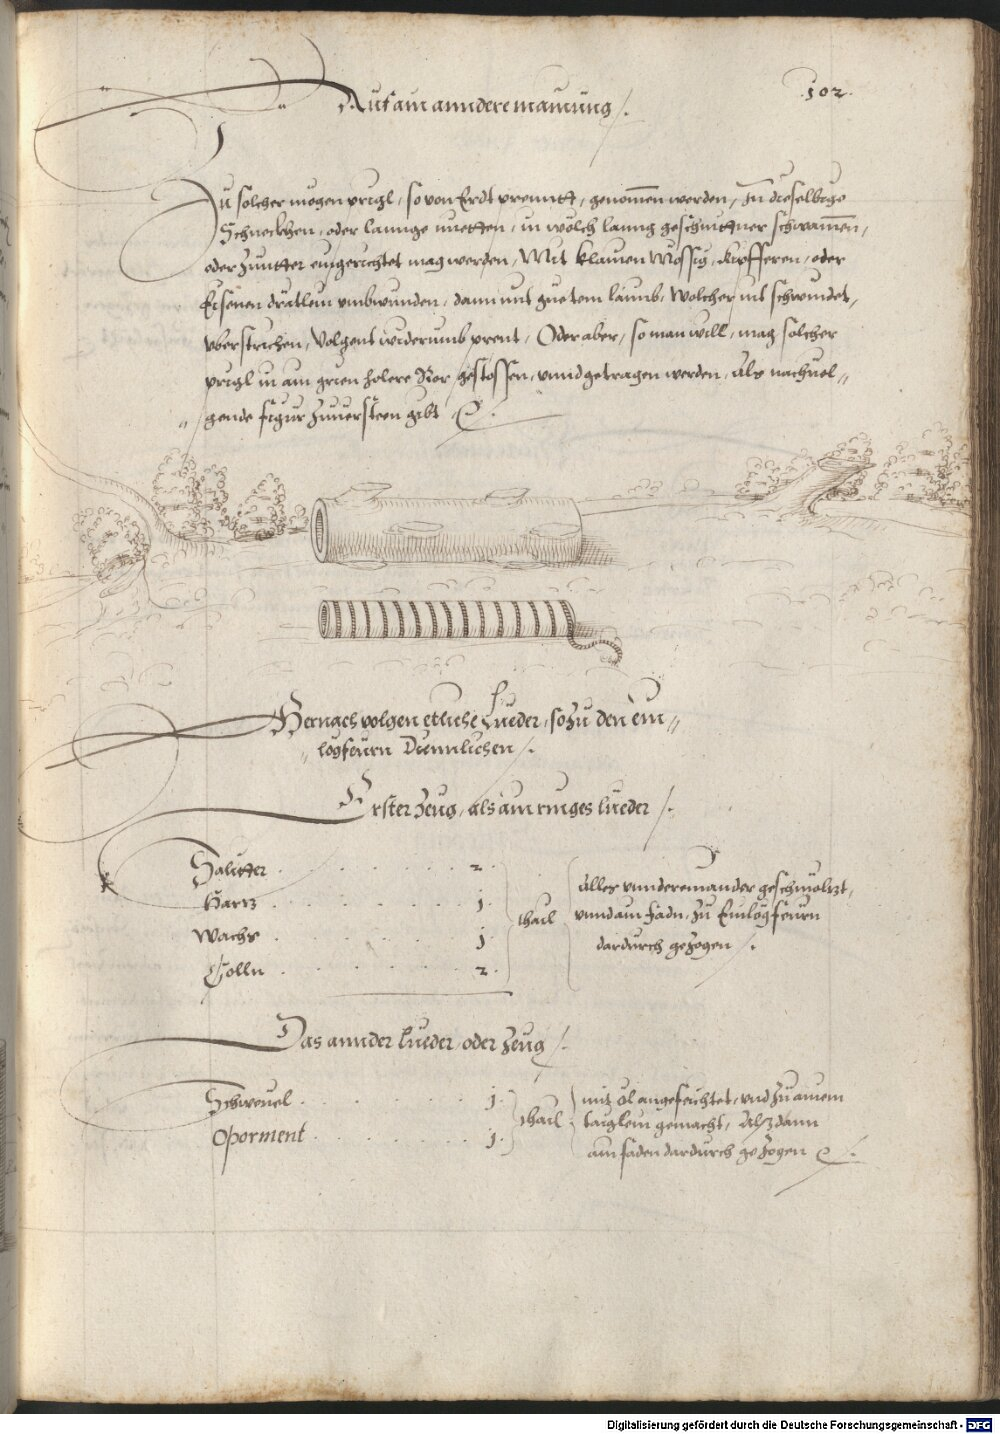 .102.
Auf ain anndere mainung /.
Zu solcher mögen prigl, so von Erdt prenntt, genomen werden, In dieselbige
Schneckhen, oder lannge nuetten, in wölch lanng geschnittner schwamen,
oder Zuntter eingericht mag werden, Mit klainen Mössig, kupfferen, oder
Eisenen drätlein umbwunden, dann mit guetem laimb, Wolcher nit schwindet,
vberstrichen, Volgent widerumb prent, Oder aber, so man will, mag solcher
prigl in ain grien holere Ror gestossen, vnnd getragen werden, Als nachuol„
„gende figur Zuuersteen gibt
Hernach volgen etliche Lueder, so Zu den ein„
„legfeurn Diennlichen /.
Erster Zeug, als ain ringes lueder /.
Saliter . . . . . 2.
Hartz . . . . . 1.
Wachs . . . . . 1.
Colln . . . . . 2.
thail
Alles vnndereinander geschmöltzt,
vnnd ain fadn, Zu Einlegfeurn
dardurch geZogen /.
Das annder Lueder, oder Zeug /.
Schwevel . . . . . 1.
Oporment . . . . . 1.
thail
mit öl angefeichtet, vnd Zu ainem
taiglein gemacht, Alßdann
ain faden dardurch geZogen
Digitalisierung gefördert durch die Deutsche Forschungsgemeinschaft - DFG